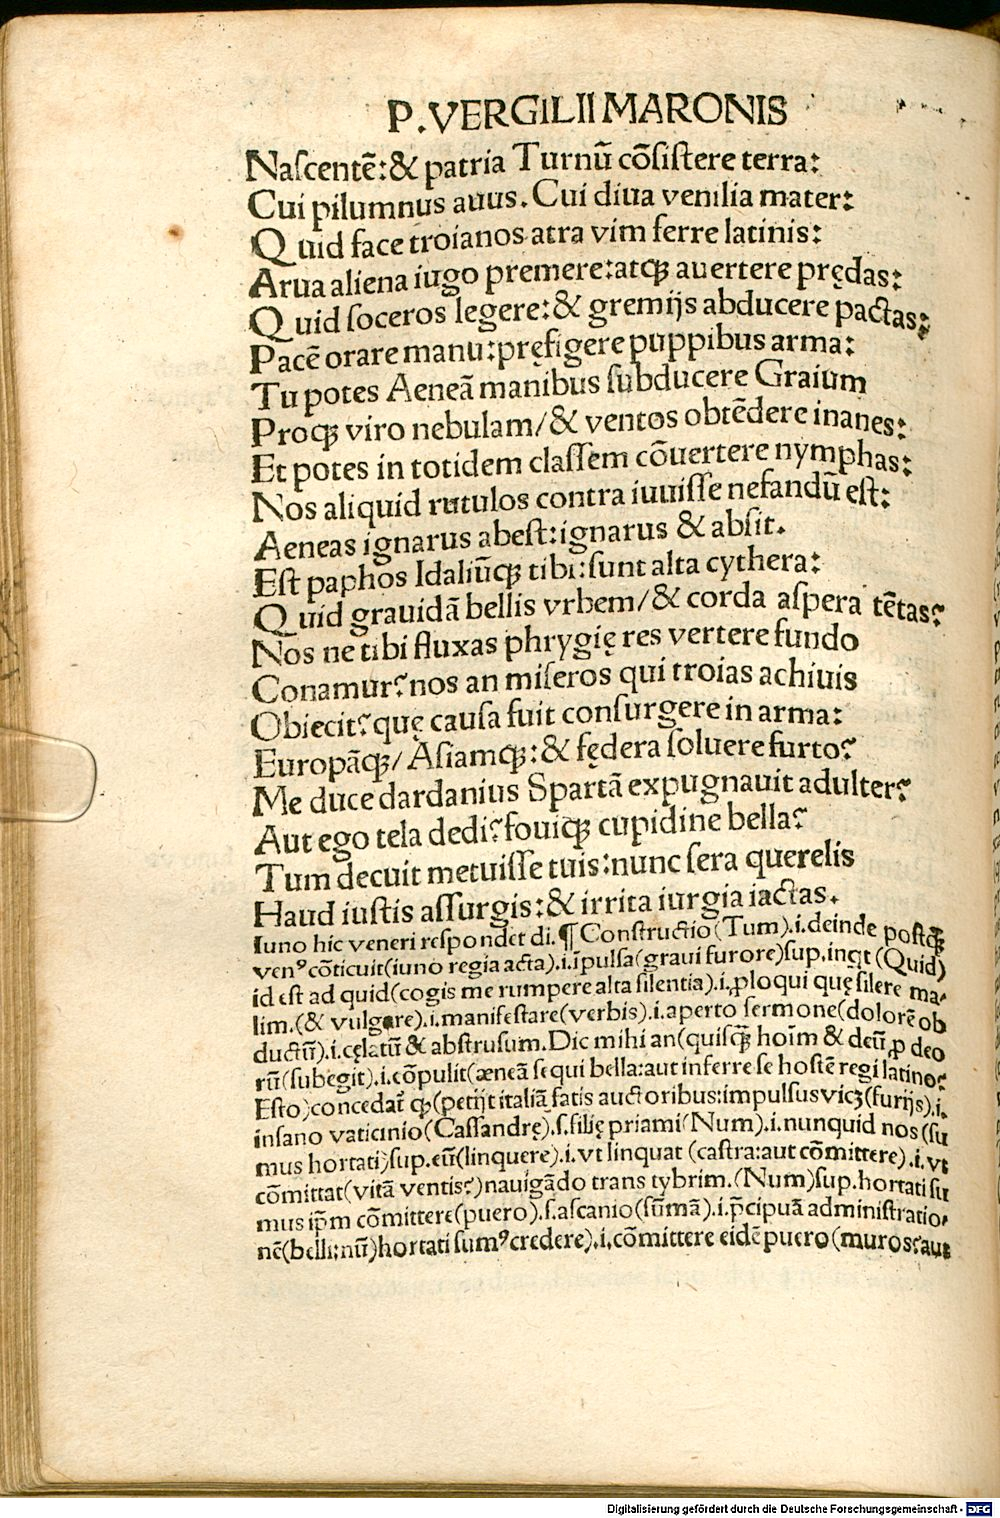 P. VERGILII MARONIS
Naſcentē:& patria Turnū cōſiſtere terra:
Cui pilumnus auus. Cui diua venilia mater:
Quid face troianos atra vim ferre latinis:
Arua aliena iugo premere:atqꝫ auertere prędas:
Quid ſoceros legere:& gremijs abducere pactas:
Pacē orare manu:pręfigere puppibus arma:
Tu potes Aeneā manibus ſubducere Graium
Proqꝫ viro nebulam/& ventos obtēdere inanes:
Et potes in totidem claſſem cōuertere nymphas:
Nos aliquid rutulos contra iuuiſſe nefandū eſt:
Aeneas ignarus abeſt:ignarus & abſit.
Eſt paphos Idaliūqꝫ tibi:ſunt alta cythera:
Quid grauidā bellis vrbem/& corda aſpera tētas?
Nos ne tibi fluxas phrygię res vertere fundo
Conamur?nos an miſeros qui troias achiuis
Obiecit?quę cauſa fuit conſurgere in arma:
Europāqꝫ/Aſiamqꝫ:& fędera ſoluere furto?
Me duce dardanius Spartā expugnauit adulter?
Aut ego tela dedi?fouiqꝫ cupidine bella?
Tum decuit metuiſſe tuis:nunc ſera querelis
Haud iuſtis aſſurgis:& irrita iurgia iactas.
Iuno hic veneri reſpondet di.¶ Conſtructio(Tum).i.deinde poſtꝙ̄
venꝰ cōticuit(iuno regia acta).i.īpulſa(graui furore)ſup.inqt (Quid)
id eſt ad quid(cogis me rumpere alta ſilentia).i.ꝓloqui quę ſilere ma-
lim.(& vulgare).i.manifeſtare(verbis).i.aperto ſermone(dolorē ob
ductū).i.cęlatū & abſtruſum.Dic mihi an(quiſꝙ̄ hoīm & deū ꝓ deo
rū(ſubegit).i.cōpulit(æneā ſequi bella:aut inferre ſe hoſtē regi latino?
Eſto)concedat̄ qꝫ(petijt italiā fatis auctoribus:impulſus vicꝫ(furijs).i.
inſano vaticinio(Caſſandrę).ſ.filię priami(Num).i.nunquid nos(ſu
mus hortati)ſup.eū(linquere).i.vt linquat (caſtra:aut cōmittere).i.vt
cōmittat(vitā ventis?)nauigādo trans tybrim.(Num)ſup.hortati ſu
mus ip̄m cōmittere(puero).ſ.aſcanio(ſūmā).i.p̄cipuā adminiſtratio-
nē(belli:nū)hortati ſumꝰ credere).i.cōmittere eidē puero(muros?aut
Digitalisierung gefördert durch die Deutsche Forschungsgemeinschaft - DFG